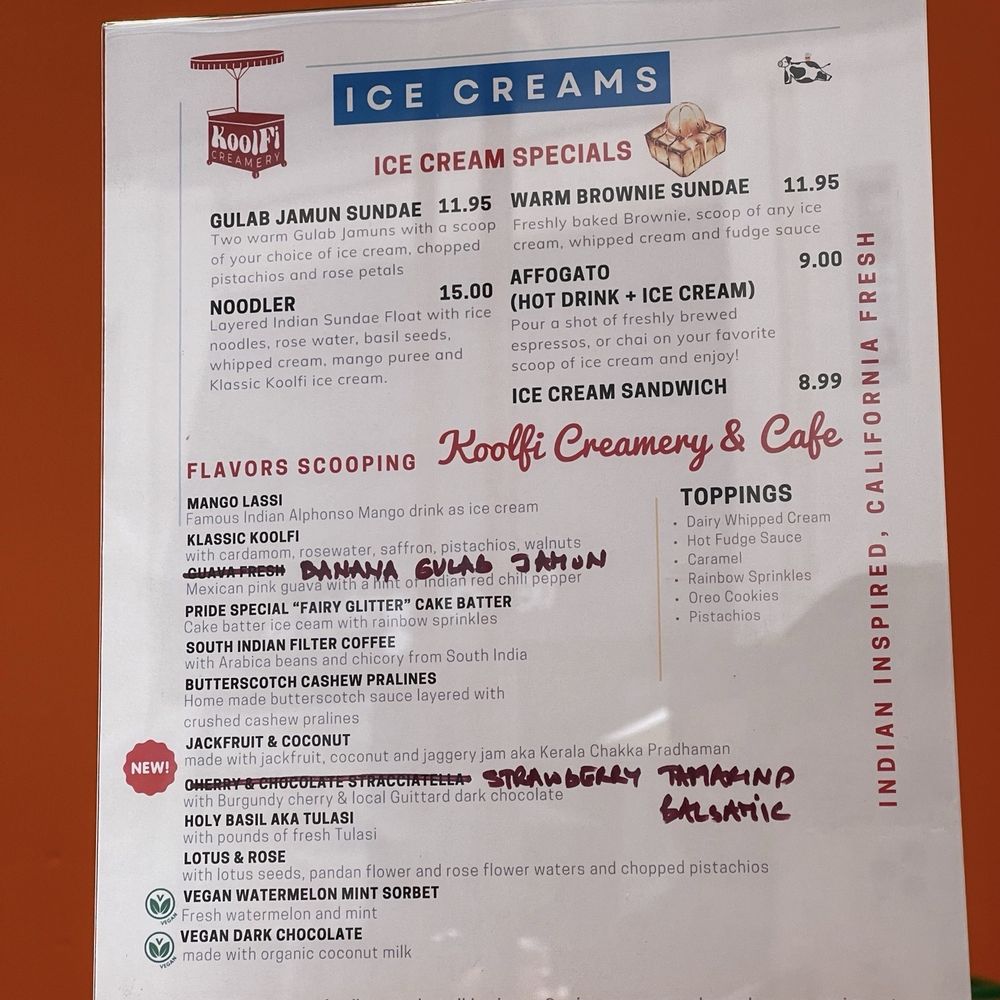 KoolFi
CREAMERY
ICE CREAMS
ICE CREAM SPECIALS
GULAB JAMUN SUNDAE 11.95
Two warm Gulab Jamuns with a scoop
of your choice of ice cream, chopped
pistachios and rose petals
NOODLER 15.00
Layered Indian Sundae Float with rice
noodles, rose water, basil seeds,
whipped cream, mango puree and
Klassic Koolfi ice cream.
WARM BROWNIE SUNDAE 11.95
Freshly baked Brownie, scoop of any ice
cream, whipped cream and fudge sauce
AFFOGATO 9.00
(HOT DRINK + ICE CREAM)
Pour a shot of freshly brewed
espressos, or chai on your favorite
scoop of ice cream and enjoy!
ICE CREAM SANDWICH 8.99
Koolfi Creamery & Cafe
FLAVORS SCOOPING
MANGO LASSI
Famous Indian Alphonso Mango drink as ice cream
KLASSIC KOOLFI
with cardamom, rosewater, saffron, pistachios, walnuts
GUAVA FRESH BANANA GULAB JAMUN
Mexican pink guava with a hint of Indian red chili pepper
PRIDE SPECIAL "FAIRY GLITTER" CAKE BATTER
Cake batter ice ceam with rainbow sprinkles
SOUTH INDIAN FILTER COFFEE
with Arabica beans and chicory from South India
BUTTERSCOTCH CASHEW PRALINES
Home made butterscotch sauce layered with
crushed cashew pralines
JACKFRUIT & COCONUT
NEW!
made with jackfruit, coconut and jaggery jam aka Kerala Chakka Pradhaman
CHERRY & CHOCOLATE STRACCIATELLA STRAWBERRY TAMARIND
BALSAMIC
with Burgundy cherry & local Guittard dark chocolate
HOLY BASIL AKA TULASI
with pounds of fresh Tulasi
LOTUS & ROSE
with lotus seeds, pandan flower and rose flower waters and chopped pistachios
VEGAN WATERMELON MINT SORBET
VEGAN
Fresh watermelon and mint
VEGAN DARK CHOCOLATE
VEGAN
made with organic coconut milk
TOPPINGS
• Dairy Whipped Cream
• Hot Fudge Sauce
• Caramel
• Rainbow Sprinkles
• Oreo Cookies
• Pistachios
INDIAN INSPIRED, CALIFORNIA FRESH